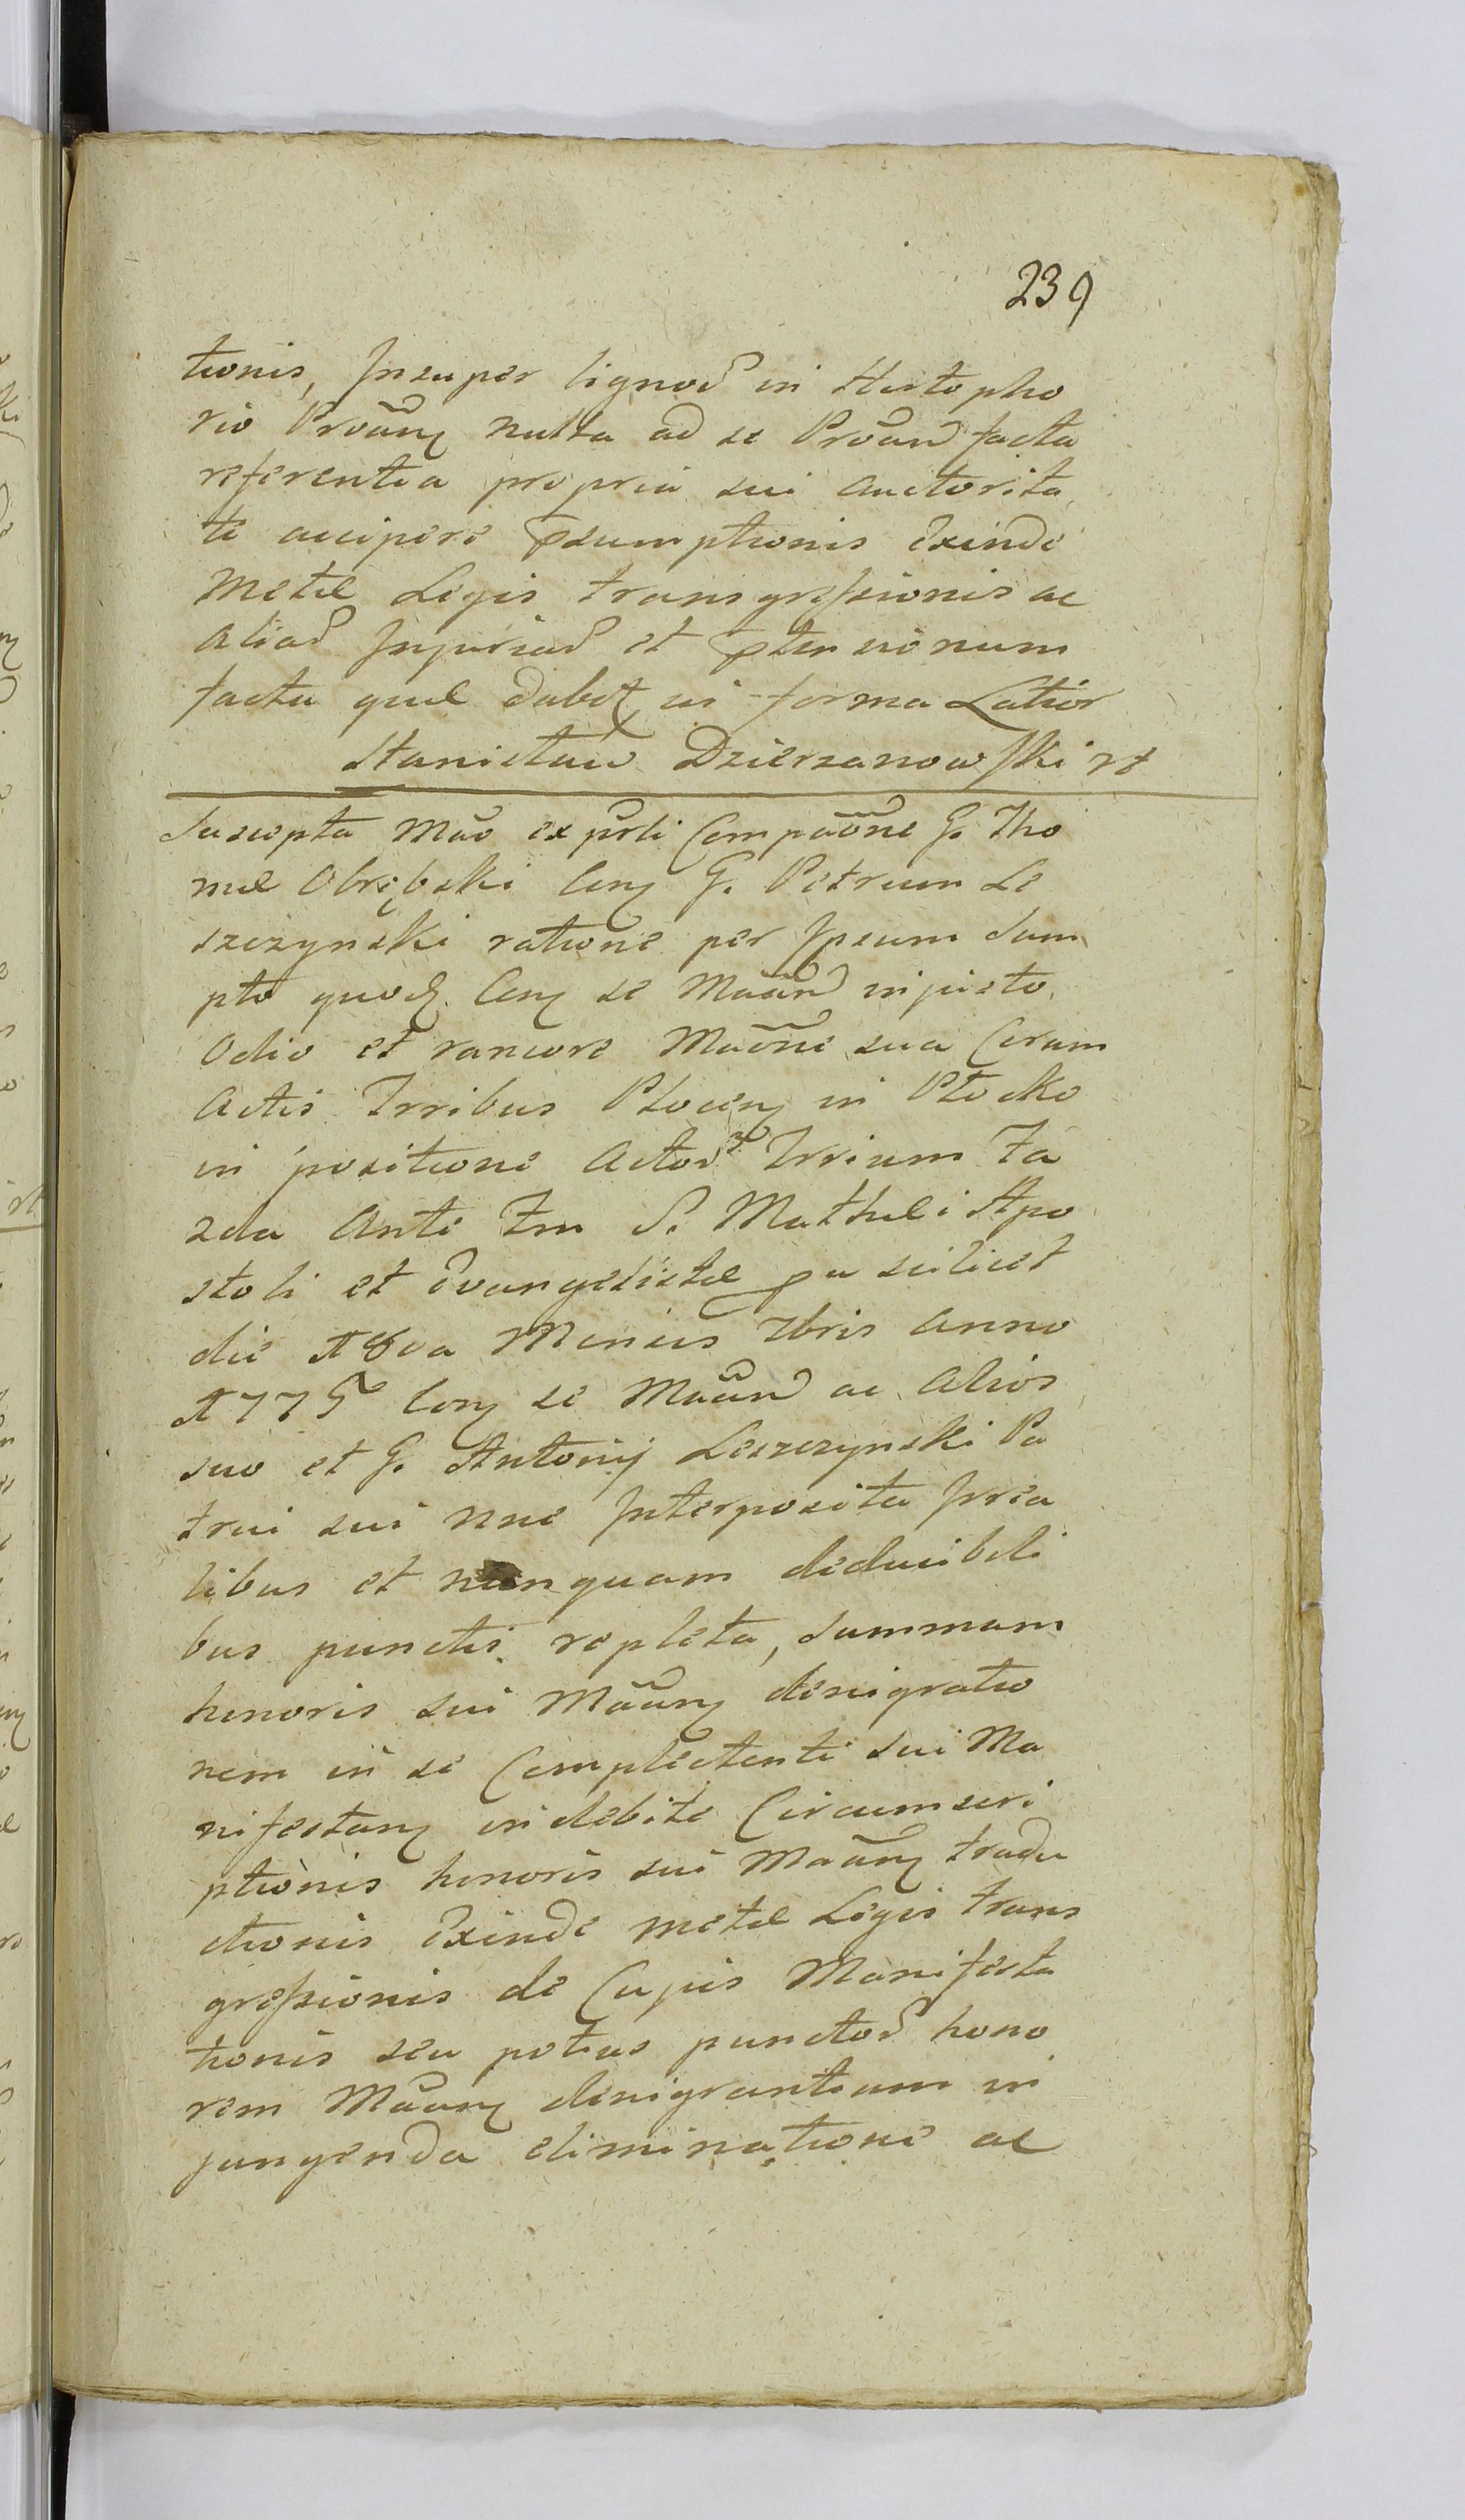 239
tionis, Insuper lignoꝝ in Hortopho
rio Proãng nulla ad se Proãnd facta
referentia propria sui auctorita
te accipere psumptionis Exinde
metæ Legis transgressionis ac
aliaꝝ Injuriaꝝ et ptensionum
facta quæ dabit in forma Latior
Stanisław Dzierzanowski rt
Suscepta Mão ex psli Compaõne G. Tho
mæ Obrębski Cong G. Petrum Le
szczynski ratione per Ipsum Sum
pto quod Cong se Maãnd injusto
Odio et rancore Maõne sua Coram
Actis Trribus Plocen in Płocko
in positione Actoꝝ Trrium Fa
2da Ante Fm S. Mathæi Apo
stoli et Evangelistæ pa scilicet
die 18va Mensis 7bris Anno
1775 Cong se Maãnd ac Alios
suo et G. Antonij Leszczynski Pa
trui sui nne Interposita Irrea
libus et nunquam deducibili
bus punctis repleta, Summam
honoris sui Maãng denigratio
nem in se Complectenti sui Ma
nifestang indebite Circumscri
ptionis honoris sui Maãng tradu
ctionis Exinde metæ Legis trans
gressionis de Cujus Manifesta
tionis seu potius punctoꝝ hono
rem Maãng denigrantium in
jungenda eliminatione ac